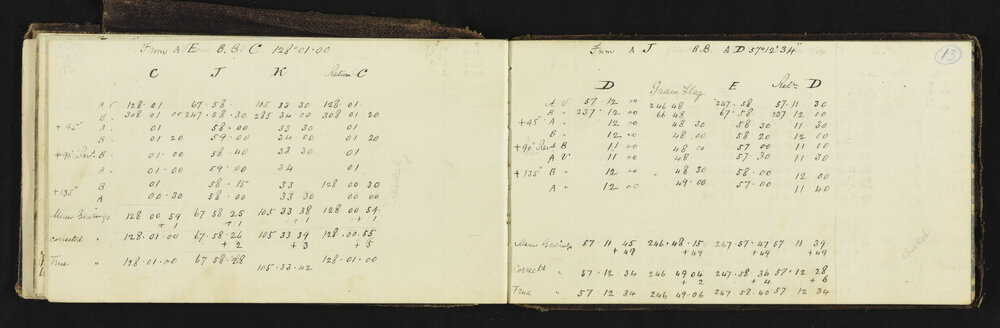 From A E B.B C 128°01·00
C J K Return C
A V 128·01 67·58· 105 33 30 128·01
B " 308 01 00 247·58·30 285 34 00 308 01 20
+45° A " 01 58·00 33 30 01
B " 01 20 59·00 34 00 01 20
+90° Revd B " 01·00 58·40 33 30 01
A " 01·00 59·00 34 01
+135° B 01 58·15 33 128 00 30
A 00·30 58·00 33 30 00 00
Mean Bearings 128 00 59 67 58 25 105 33 38 128 00 54
+1 +1 +1 +1
Corrected " 128·01·00 67·58·26 105 33 39 128·00·55
+2 +3 +5
True " 128·01·00 67 58·28 105·33·42 128·01·00
13
From A J B.B A D 57°12'34"
D Grain Flag E Retn D
A V 57·12 00 246 48 247·58· 57·11 30
B " 237·12 00 66·48 67·58 237·12 00
+45° A " 12 00 48 30 58 30 11·30
B " 12 00 48 00 58 20 12 00
+90° Revd B 11 00 48 00 57 00 11 00
A V 11 00 48 57 30 11 30
+135° B " 12 00 48 30 58·00 12 00
A " 12 00 49·00 57·00 11 40
Mean Bearings 57 11 45 246·48·15 247·57·47 57 11 39
+49 +49 +49 +49
Corrected " 57·12·34 246 49 04 247·58·36 57·12 28
+2 +4 +6
True " 57·12·34 246 49·06 247·58·40 57 12 34